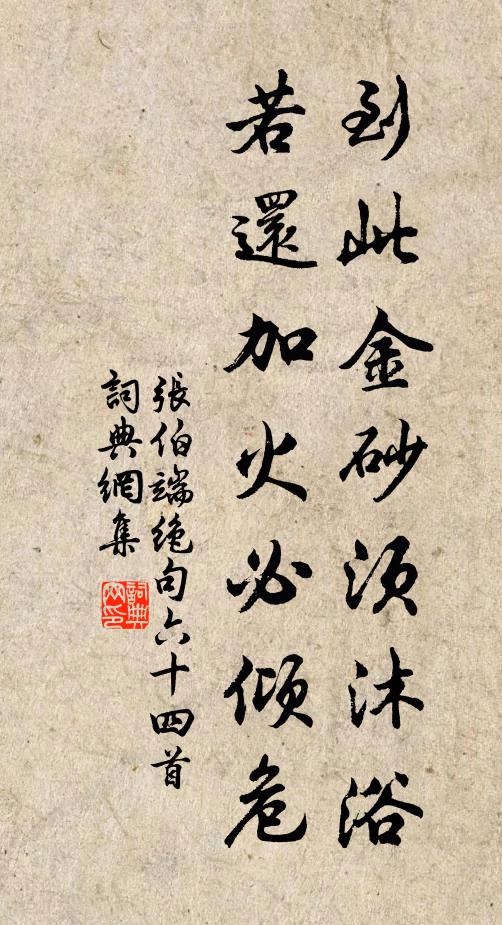 到此金砂須沐浴
若還加火必傾危
張伯端絶句六十四首
詞典網集
詞典
网印